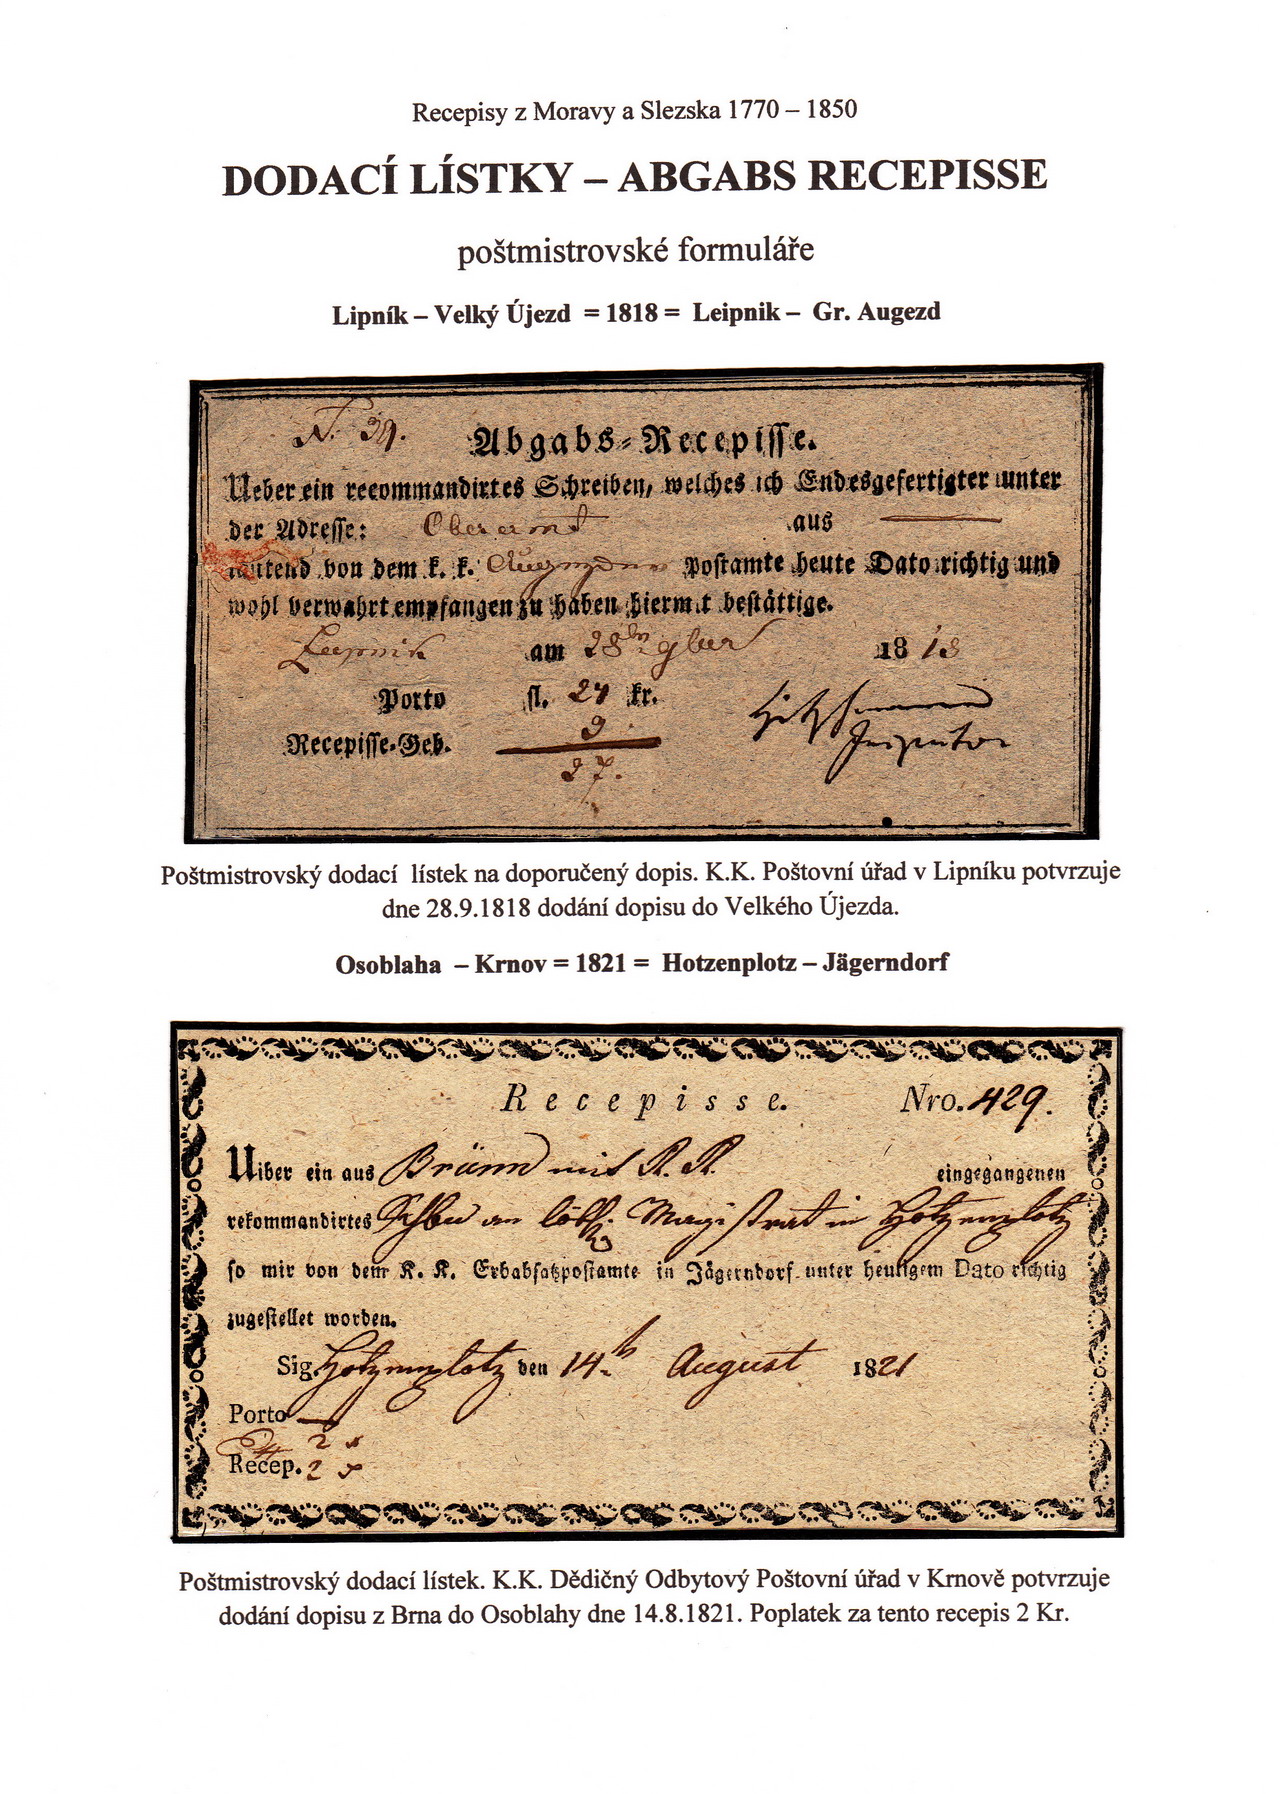 Recepisy z Moravy a Slezska 1770 – 1850
DODACÍ LÍSTKY – ABGABS RECEPISSE
poštmistrovské formuláře
Lipník – Velký Újezd = 1818 = Leipnik – Gr. Augezd
N. 39.
Abgabs-Recepisse.
Ueber ein recommandirtes Schreiben, welches ich Endesgefertigter unter
der Adresse: Oberamt aus
lautend von dem k. k. postamte heute Dato richtig und
wohl verwahrt empfangen zu haben hiermit bestättige.
Leipnik am 28ten 9ber 1818
Porto fl. 24 kr.
Recepisse-Geb. 3
27.
Poštmistrovský dodací lístek na doporučený dopis. K.K. Poštovní úřad v Lipníku potvrzuje
dne 28.9.1818 dodání dopisu do Velkého Újezda.
Osoblaha – Krnov = 1821 = Hotzenplotz – Jägerndorf
Recepisse. Nro. 429.
Uiber ein aus Brünn mit R. R. eingegangenen
rekommandirtes Schbn an löbl. Magistrat in Hotzenplotz
so mir von dem K. K. Erbabsatzpostamte in Jägerndorf unter heutigem Dato richtig
zugestellet worden.
Sig. Hotzenplotz den 14. August 1821
Porto —
2 x
Recep. 2 x
Poštmistrovský dodací lístek. K.K. Dědičný Odbytový Poštovní úřad v Krnově potvrzuje
dodání dopisu z Brna do Osoblahy dne 14.8.1821. Poplatek za tento recepis 2 Kr.